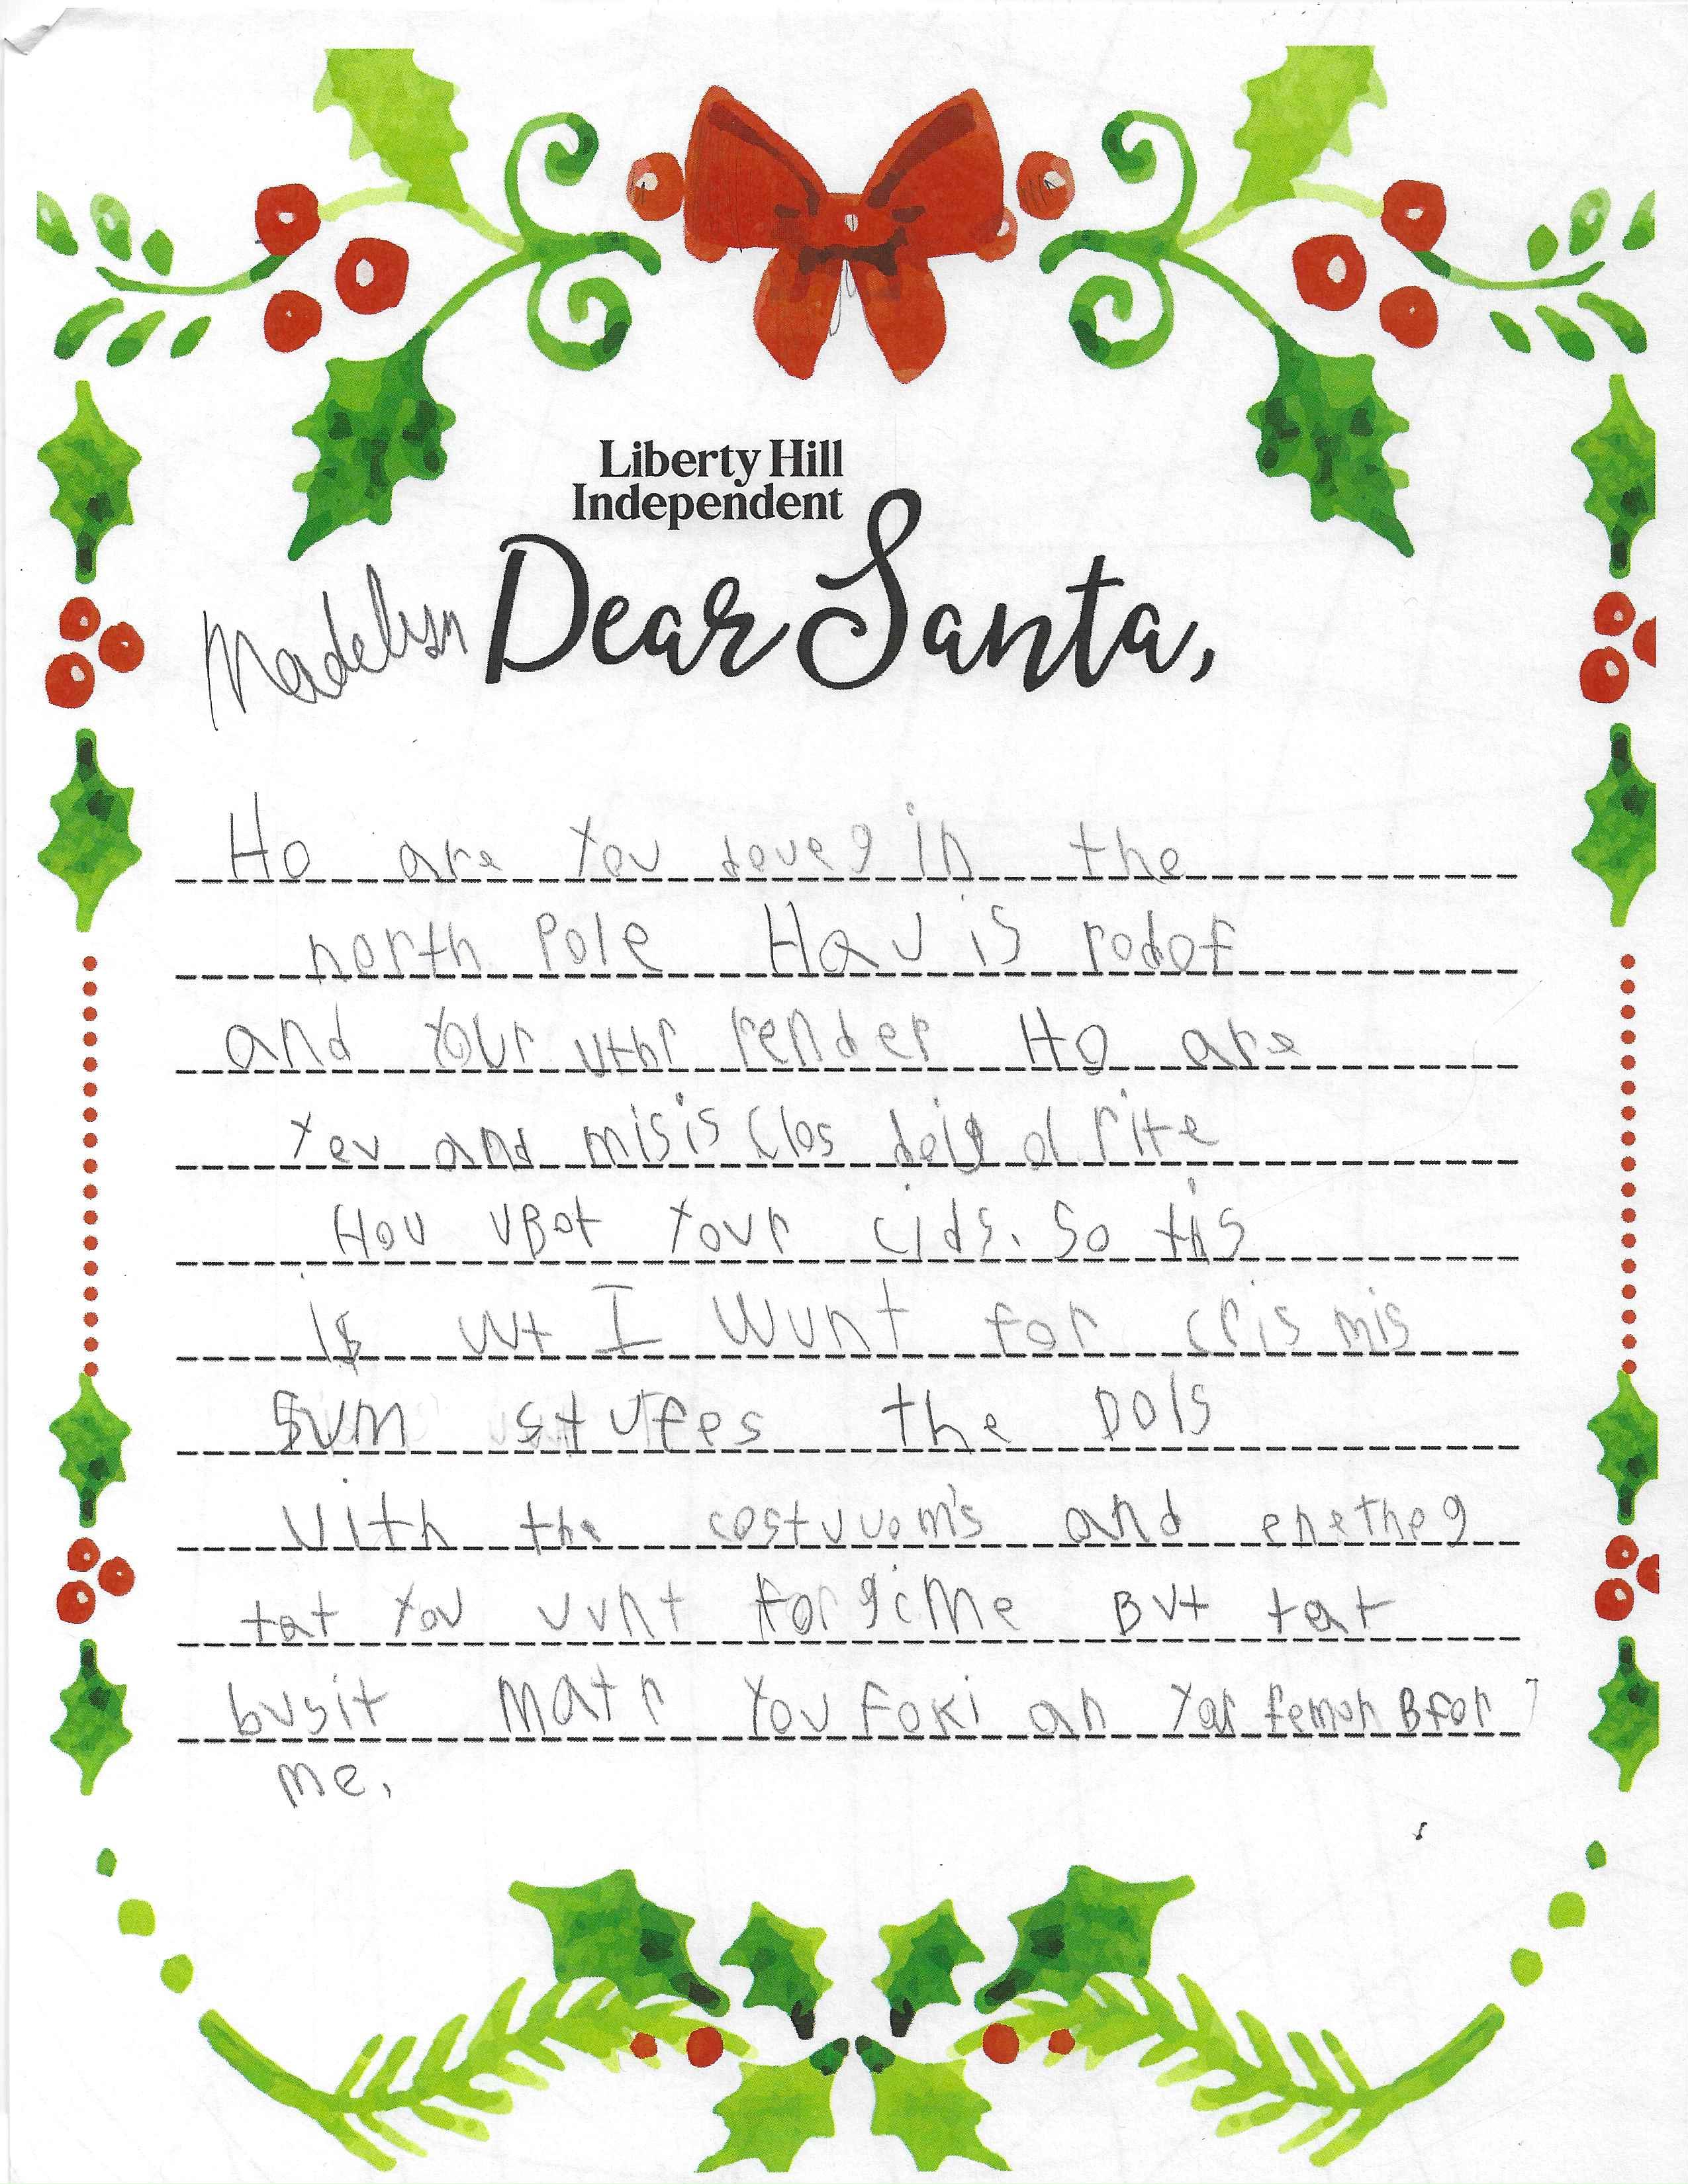 Liberty Hill
Independent
Madelyn Dear Santa,
Ho are You doveg in the
north Pole Hau is rodof
and Your uthr render Ho are
Yev and misis Clos doig ol rite
Hou uBot Your cids. So this
is wt I wunt for crismis
Sum stufes the Dols
vith the costuuom's and enetheg
tat You vunt for gi me But tat
busit matr You Foki an Yar femor Bfor
me.